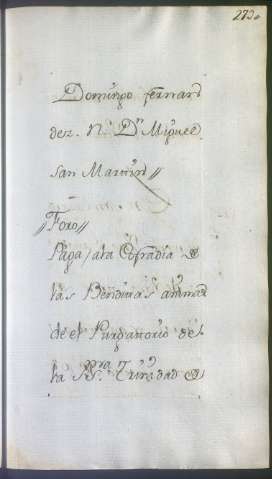 273.
Domingo fernan
dez. N.º D.n Miguel
San Martin//
//Foro//
Paga / ala Cofradia de
las Benditas animas
de el Purgatorio de
la SS.ma Trinidad de